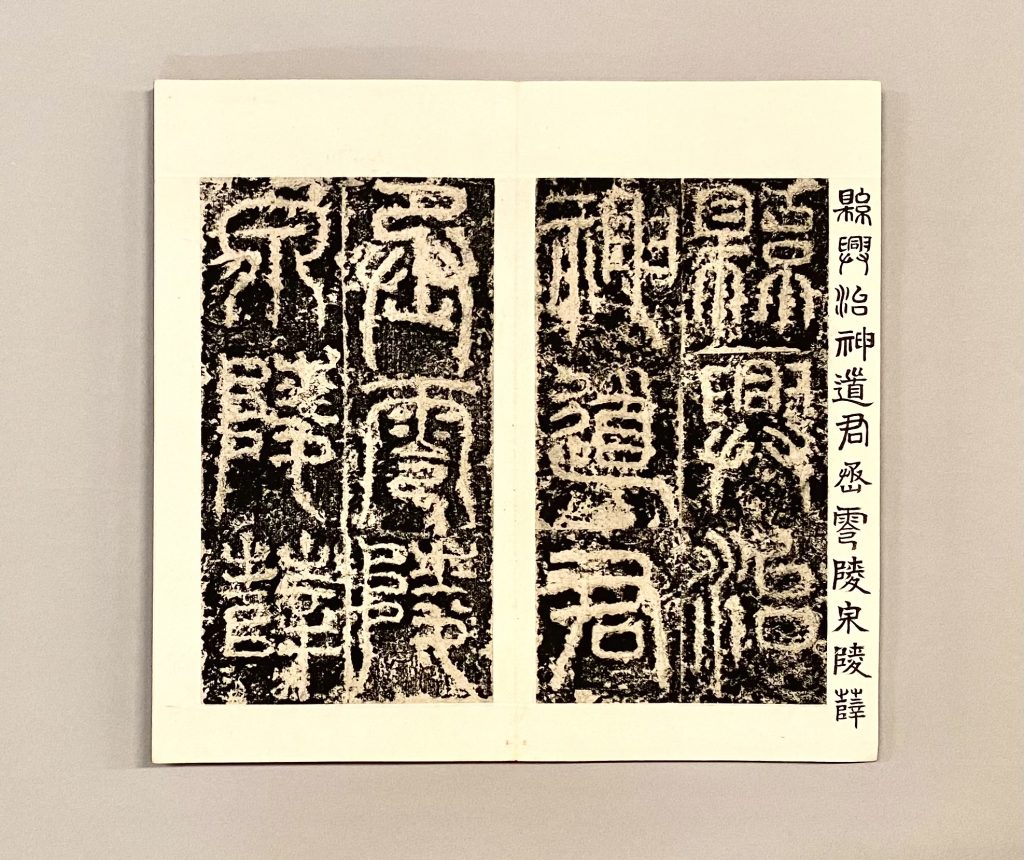 縣興治神道君丞零陵泉陵薛
縣興治
神道君
丞零陵
泉陵薛